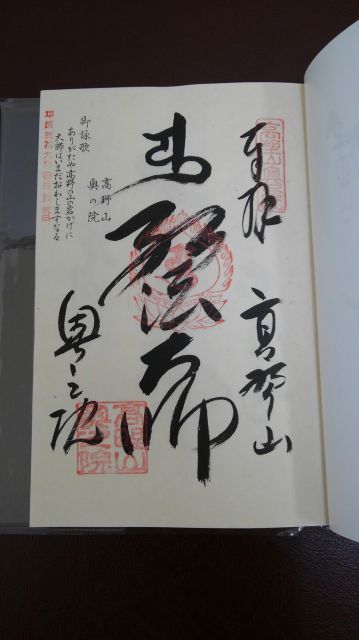 奉拝
高野山
弘法大師
奥之院
御詠歌
高野山
奥の院
ありがたや高野の山の岩かげに
大師はいまだおわしますなる
高野山
奥之院